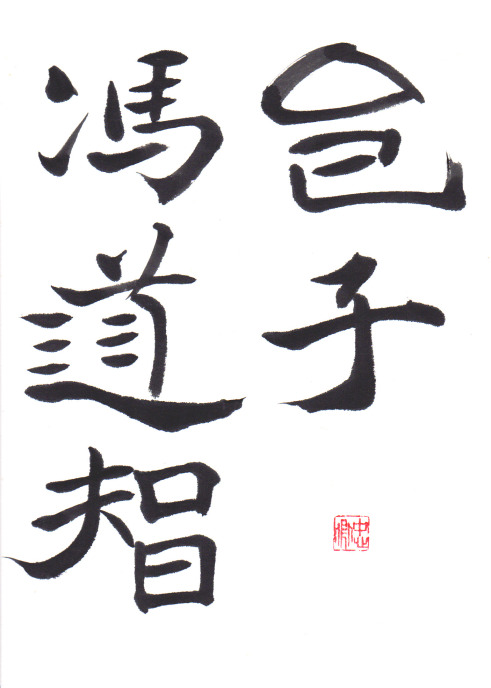 邑子
馮道智